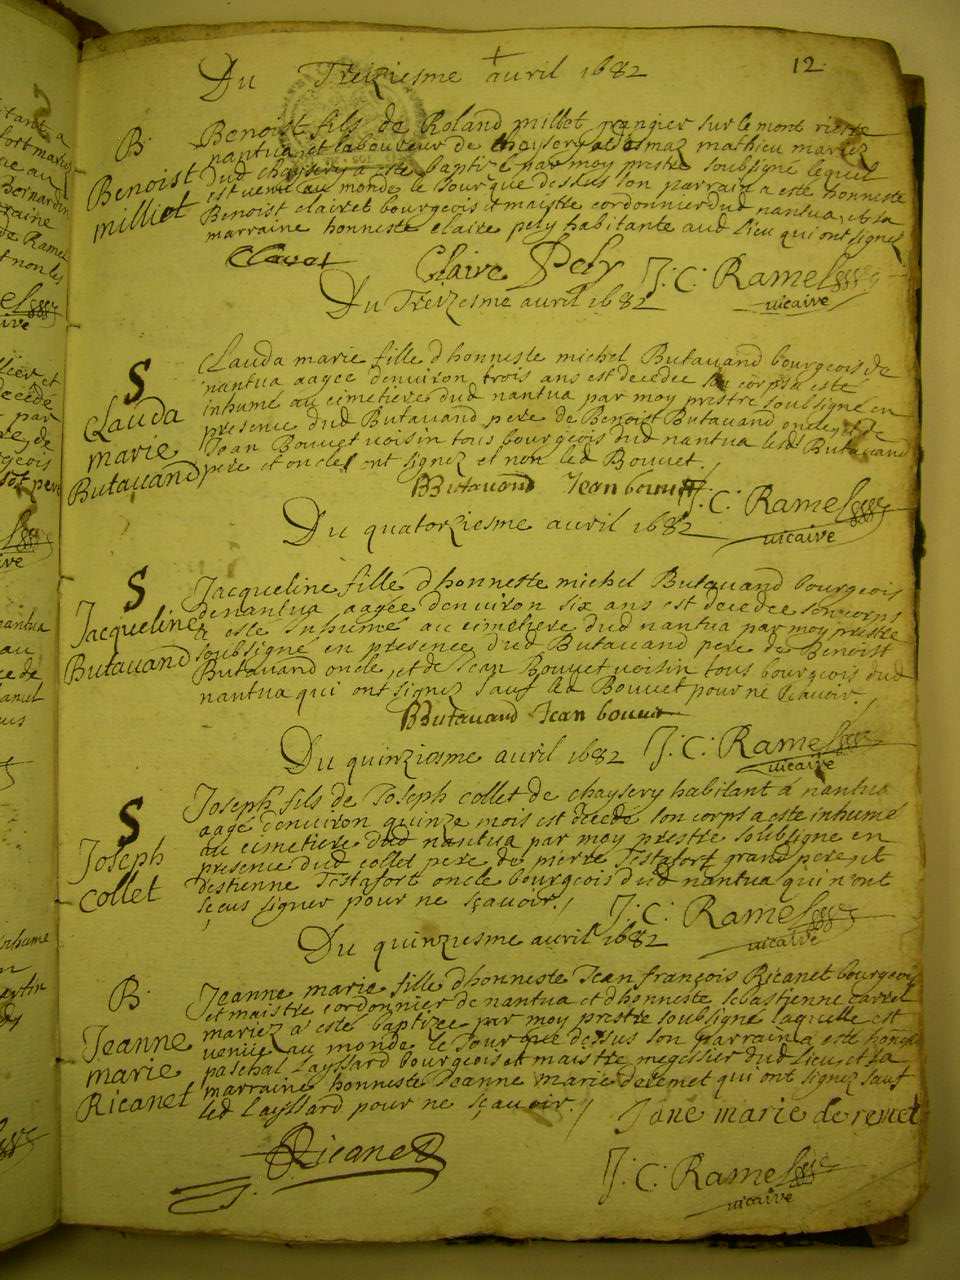 12
Du Treiziesme avril 1682
B.
Benoist
milliet
Benoist fils de Roland millet grangier sur le mont
nantua, et laboureur de chaysery et mathieu mariez
dud chaysery a este baptizé par moy prestre soubsigné lequel
est venu au monde le jour que dessus son parrain a este honneste
Benoist clairet bourgeois et maistre cordonnier dud nantua, et sa
marraine honneste claire pely habitante aud lieu qui ont signez
Claire Pely J: C: Ramel
vicaire
Du Treizesme avril 1682
S
Clauda
marie
Butavand
Clauda marie fille d honneste michel Butavand bourgeois de
nantua aagée denviron trois ans est decedée son corps a este
inhumé au cimetiere dud nantua par moy prestre soubsigné en
presence dud Butavand pere de Benoist Butavand oncle, et de
Jean Bouvet voisin tous bourgeois dud nantua lesd Butavand
pere et oncles ont signez et non led Bouvet.
BButavand Jean bouvit J: C: Ramel
vicaire
Du quatorziesme avril 1682
S
Jacqueline
Butavand
Jacqueline fille d honneste michel Butavand bourgeois
denantua, aagée denviron six ans est decedee son corps
a este Inhumé au cimetiere dud nantua par moy prestre
soubsigné en presence dud Butavand pere de Benoist
Butavand oncle, et de Jean Bouvet voisin tous bourgeois dud
nantua qui ont signez sauf led Bouvet pour ne sçavoir.
BButavand Jean bouvit
J: C: Ramel
vicaire
Du quinziesme avril 1682
S
Joseph
collet
Joseph fils de Joseph collet de chaysery habitant a nantua
aagé denviron quinze mois est decedé son corps a este inhumé
au cimetiere dud nantua par moy prestre soubsigné en
presence dud collet pere de pierre Testafort grand pere, et
destienne Testafort oncle bourgeois dud nantua qui n'ont
sceus signer pour ne sçavoir./ J: C: Ramel
vicaire
Du quinziesme avril 1682
B.
Jeanne
marie
Ricanet
Jeanne marie fille d honneste Jean françois Ricanet bourgeois
et maistre cordonnier de nantua et d honneste sebastienne carrel
mariez a este baptizee par moy prestre soubsigné laquelle est
venüe au monde le jour que dessus son parrain a este honneste
paschal Layssard bourgeois et maistre megissier dud lieu, et sa
marraine honneste Jeanne marie deremet qui ont signez sauf
led Layssard pour ne sçavoir./
Jane marie de remet
Ricanet
J: C: Ramel
vicaire